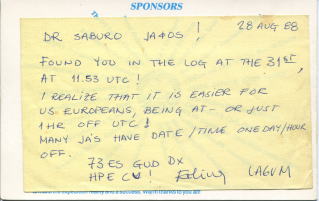 SPONSORS
28 AUG 88
DR SABURO JA4OS!
FOUND YOU IN THE LOG AT THE 31ST,
AT 11.53 UTC!
I REALIZE THAT IT IS EASIER FOR
US EUROPEANS, BEING AT- OR JUST
1HR OFF UTC!
MANY JA'S HAVE DATE/TIME ONE DAY/HOUR
OFF.
73 ES GUD DX
HPE CU! Erling LA6VM